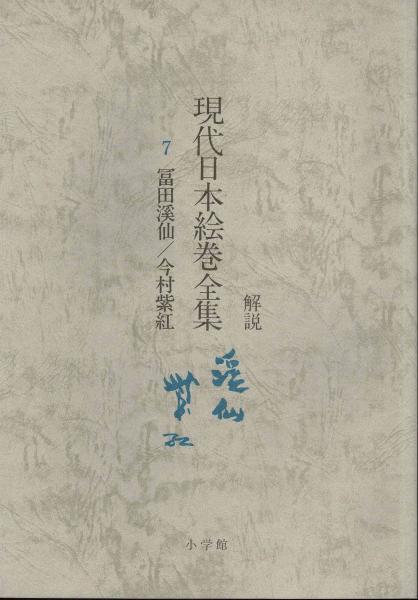 解説
現代日本絵巻全集
7 冨田溪仙／今村紫紅
溪仙
紫紅
小学館